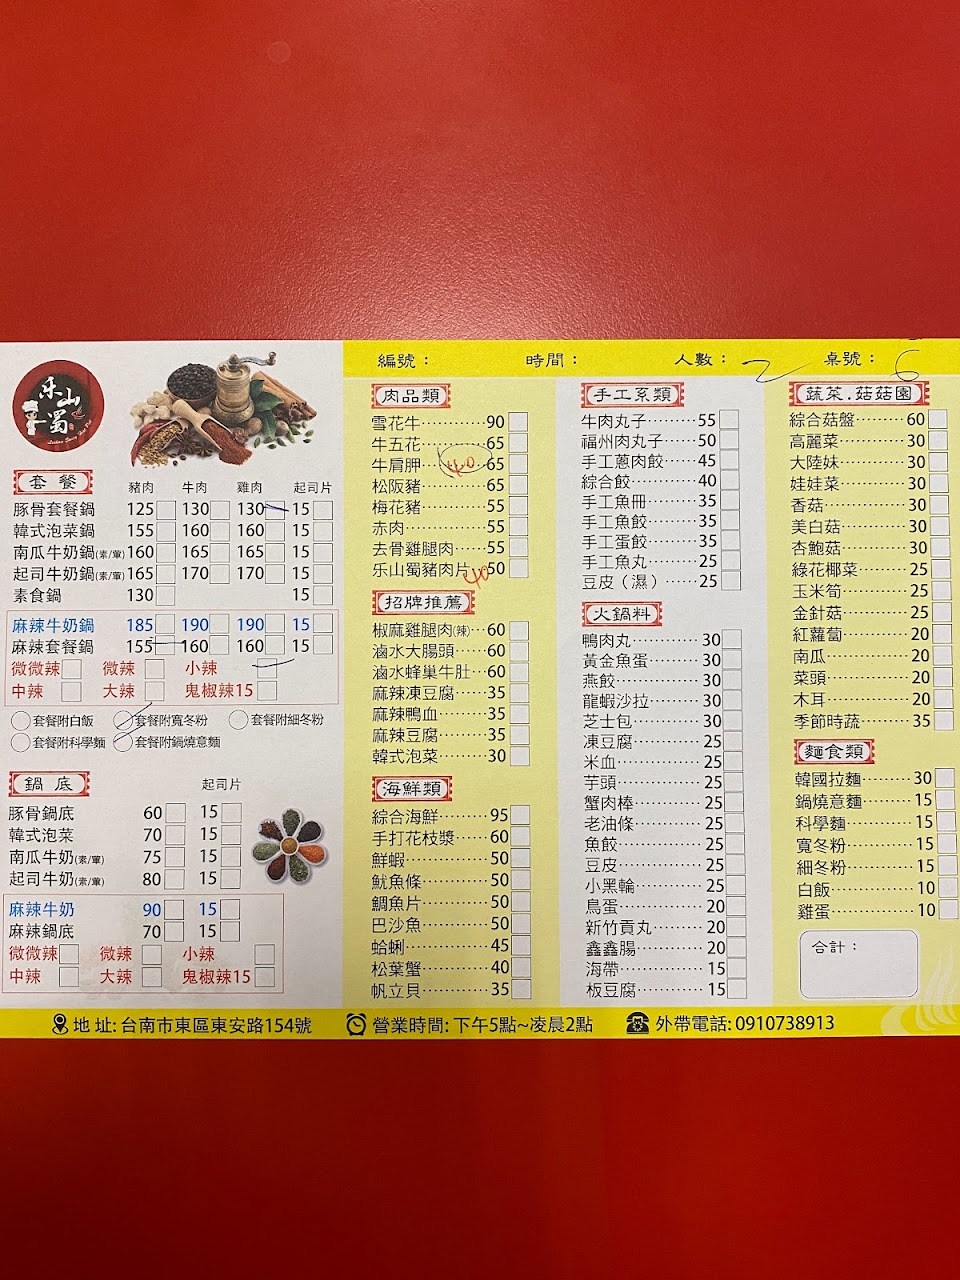 編號： 時間： 人數： 2 桌號： 6
乐山蜀
套餐 豬肉 牛肉 雞肉 起司片
豚骨套餐鍋 125 130 130 15
韓式泡菜鍋 155 160 160 15
南瓜牛奶鍋(素/葷) 160 165 165 15
起司牛奶鍋(素/葷) 165 170 170 15
素食鍋 130 15
麻辣牛奶鍋 185 190 190 15
麻辣套餐鍋 155 160 160 15
微微辣 微辣 小辣
中辣 大辣 鬼椒辣15
套餐附白飯 套餐附寬冬粉 套餐附細冬粉
套餐附科學麵 套餐附鍋燒意麵
鍋底 起司片
豚骨鍋底 60 15
韓式泡菜 70 15
南瓜牛奶(素/葷) 75 15
起司牛奶(素/葷) 80 15
麻辣牛奶 90 15
麻辣鍋底 70 15
微微辣 微辣 小辣
中辣 大辣 鬼椒辣15
肉品類
雪花牛 90
牛五花 65
牛肩胛 65 40
松阪豬 65
梅花豬 55
赤肉 55
去骨雞腿肉 55
乐山蜀豬肉片 50 40
招牌推薦
椒麻雞腿肉(辣) 60
滷水大腸頭 60
滷水蜂巢牛肚 60
麻辣凍豆腐 35
麻辣鴨血 35
麻辣豆腐 35
韓式泡菜 30
海鮮類
綜合海鮮 95
手打花枝漿 60
鮮蝦 50
魷魚條 50
鯛魚片 50
巴沙魚 50
蛤蜊 45
松葉蟹 40
帆立貝 35
手工系類
牛肉丸子 55
福州肉丸子 50
手工蔥肉餃 45
綜合餃 40
手工魚冊 35
手工魚餃 35
手工蛋餃 35
手工魚丸 25
豆皮（濕） 25
火鍋料
鴨肉丸 30
黃金魚蛋 30
燕餃 30
龍蝦沙拉 30
芝士包 30
凍豆腐 25
米血 25
芋頭 25
蟹肉棒 25
老油條 25
魚餃 25
豆皮 25
小黑輪 25
鳥蛋 20
新竹貢丸 20
鑫鑫腸 20
海帶 15
板豆腐 15
蔬菜.菇菇園
綜合菇盤 60
高麗菜 30
大陸妹 30
娃娃菜 30
香菇 30
美白菇 30
杏鮑菇 30
綠花椰菜 25
玉米筍 25
金針菇 25
紅蘿蔔 20
南瓜 20
菜頭 20
木耳 20
季節時蔬 35
麵食類
韓國拉麵 30
鍋燒意麵 15
科學麵 15
寬冬粉 15
細冬粉 15
白飯 10
雞蛋 10
合計：
地 址: 台南市東區東安路154號 營業時間: 下午5點~凌晨2點 外帶電話: 0910738913